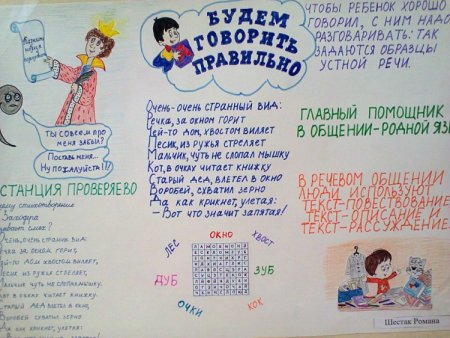 БУДЕМ
ГОВОРИТЬ
ПРАВИЛЬНО
ЧТОБЫ РЕБЕНОК ХОРОШО
ГОВОРИЛ, С НИМ НАДО
РАЗГОВАРИВАТЬ: ТАК
ЗАДАЮТСЯ ОБРАЗЦЫ
УСТНОЙ РЕЧИ.
ТЫ СОВСЕМ ПРО
МЕНЯ ЗАБЫЛ?
Поставь меня...
Ну пожалуйста!!!
Очень-очень странный вид:
Речка, за окном горит
Чей-то дом, хвостом виляет
Песик, из ружья стреляет
Мальчик, чуть не слопал мышку
Кот, в очках читает книжку
Старый дед, влетел в окно
Воробей, схватил зерно
Да как крикнет, улетая:
- Вот что значит запятая!
ГЛАВНЫЙ ПОМОЩНИК
В ОБЩЕНИИ-РОДНОЙ ЯЗЫ
В РЕЧЕВОМ ОБЩЕНИИ
ЛЮДИ ИСПОЛЬЗУЮТ
ТЕКСТ-ПОВЕСТВОВАНИЕ,
ТЕКСТ-ОПИСАНИЕ И
ТЕКСТ-РАССУЖДЕНИЕ
СТАНЦИЯ ПРОВЕРЯЕВО
чему стихотворение
Заходера
ывает смех?
Очень, очень странный вид:
Речка за окном горит,
Чей-то дом хвостом виляет,
Песик из ружья стреляет,
Мальчик чуть не слопал мышку.
Кот в очках читает книжку.
Старый дед влетел в окно,
Воробей схватил зерно
Да как крикнет, улетая:
ЛЕС
ОКНО
ХВОСТ
ДУБ
ЗУБ
ОЧКИ
КОК
Шестак Романа